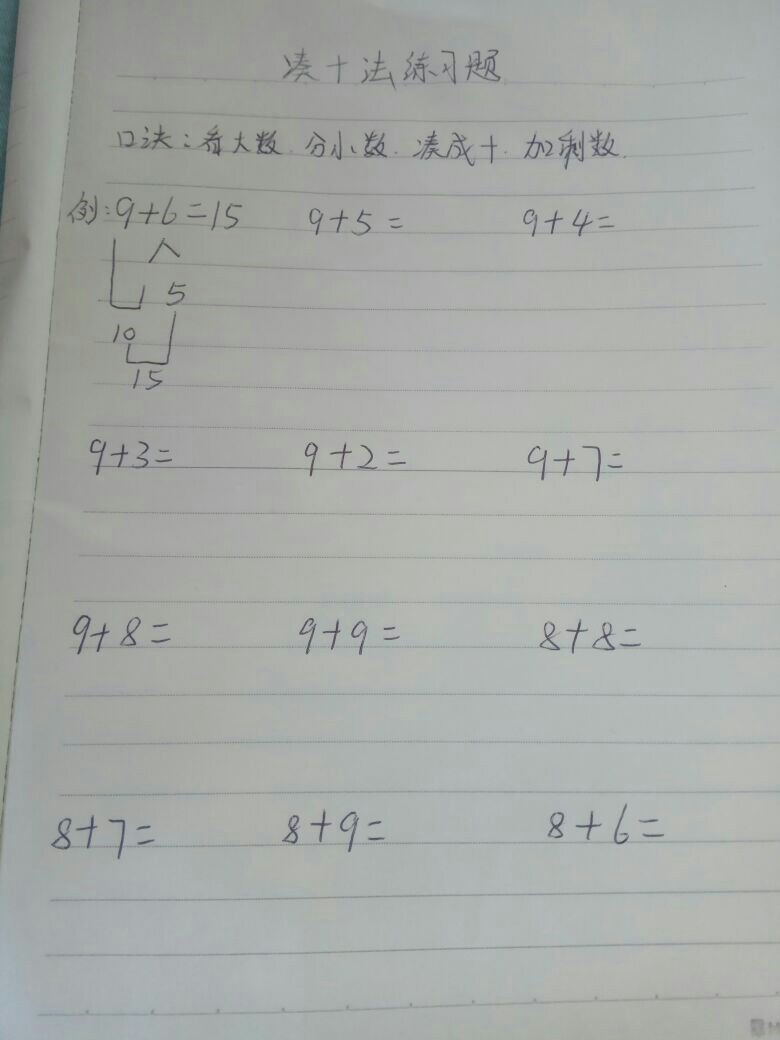 凑十法练习题
口决:看大数 分小数 凑成十 加剩数
例:9+6=15 9+5= 9+4=
1 5
10
15
9+3= 9+2= 9+7=
9+8= 9+9= 8+8=
8+7= 8+9= 8+6=